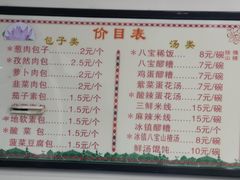 价目表
包子类
*葱肉包子……2元/个
*孜然肉包……2元/个
萝卜肉包……2元/个
韭菜肉包……2元/个
茄子素包……1.5元/个
1.5元/个
*地软素包……1.5元/个
*酸菜包……1.5元/个
菠菜豆腐包……1.5元/个
汤类
*八宝稀饭……8元/碗
八宝醪糟……7元/碗
鸡蛋醪糟……7元/碗
紫菜蛋花汤……7元/碗
*酸辣蛋花汤……7元/碗
三鲜米线……15元/碗
麻辣米线……15元/碗
冰镇醪糟……5元/碗
*冰镇八宝山楂汤……8元/碗
鲜汤馄饨……10元/碗